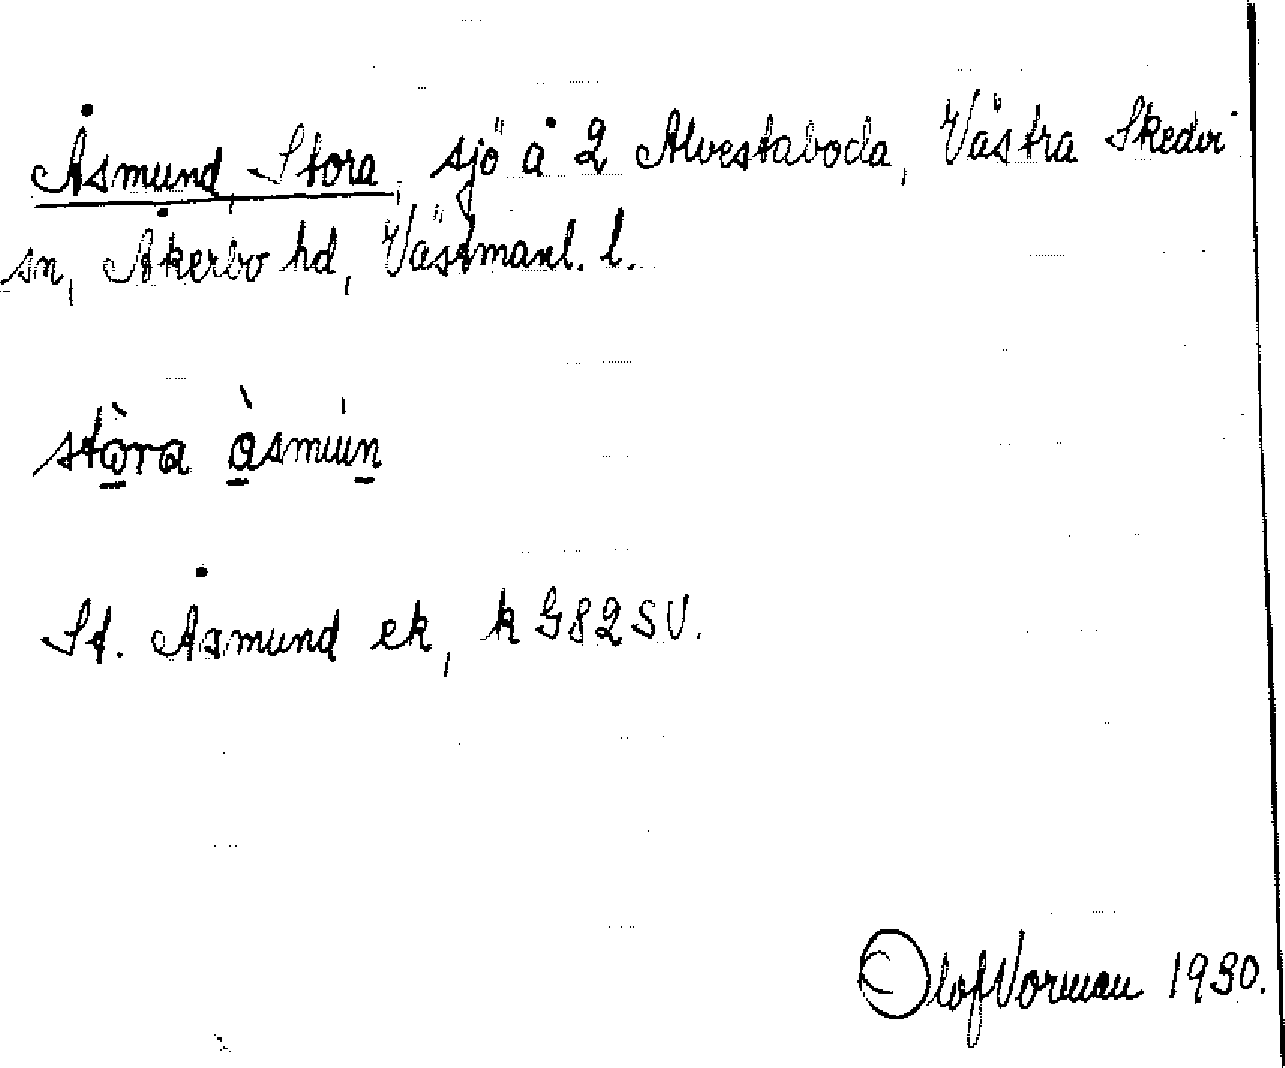 Åsmund, Stora, sjö å 2 Alvestaboda, Västra Skedvi
sn, Åkerbo hd, Västmanl. l.
stò̱ra ò̱smuṉ
St. Åsmund ek, k G82SV.
Olof Vorman 1930.